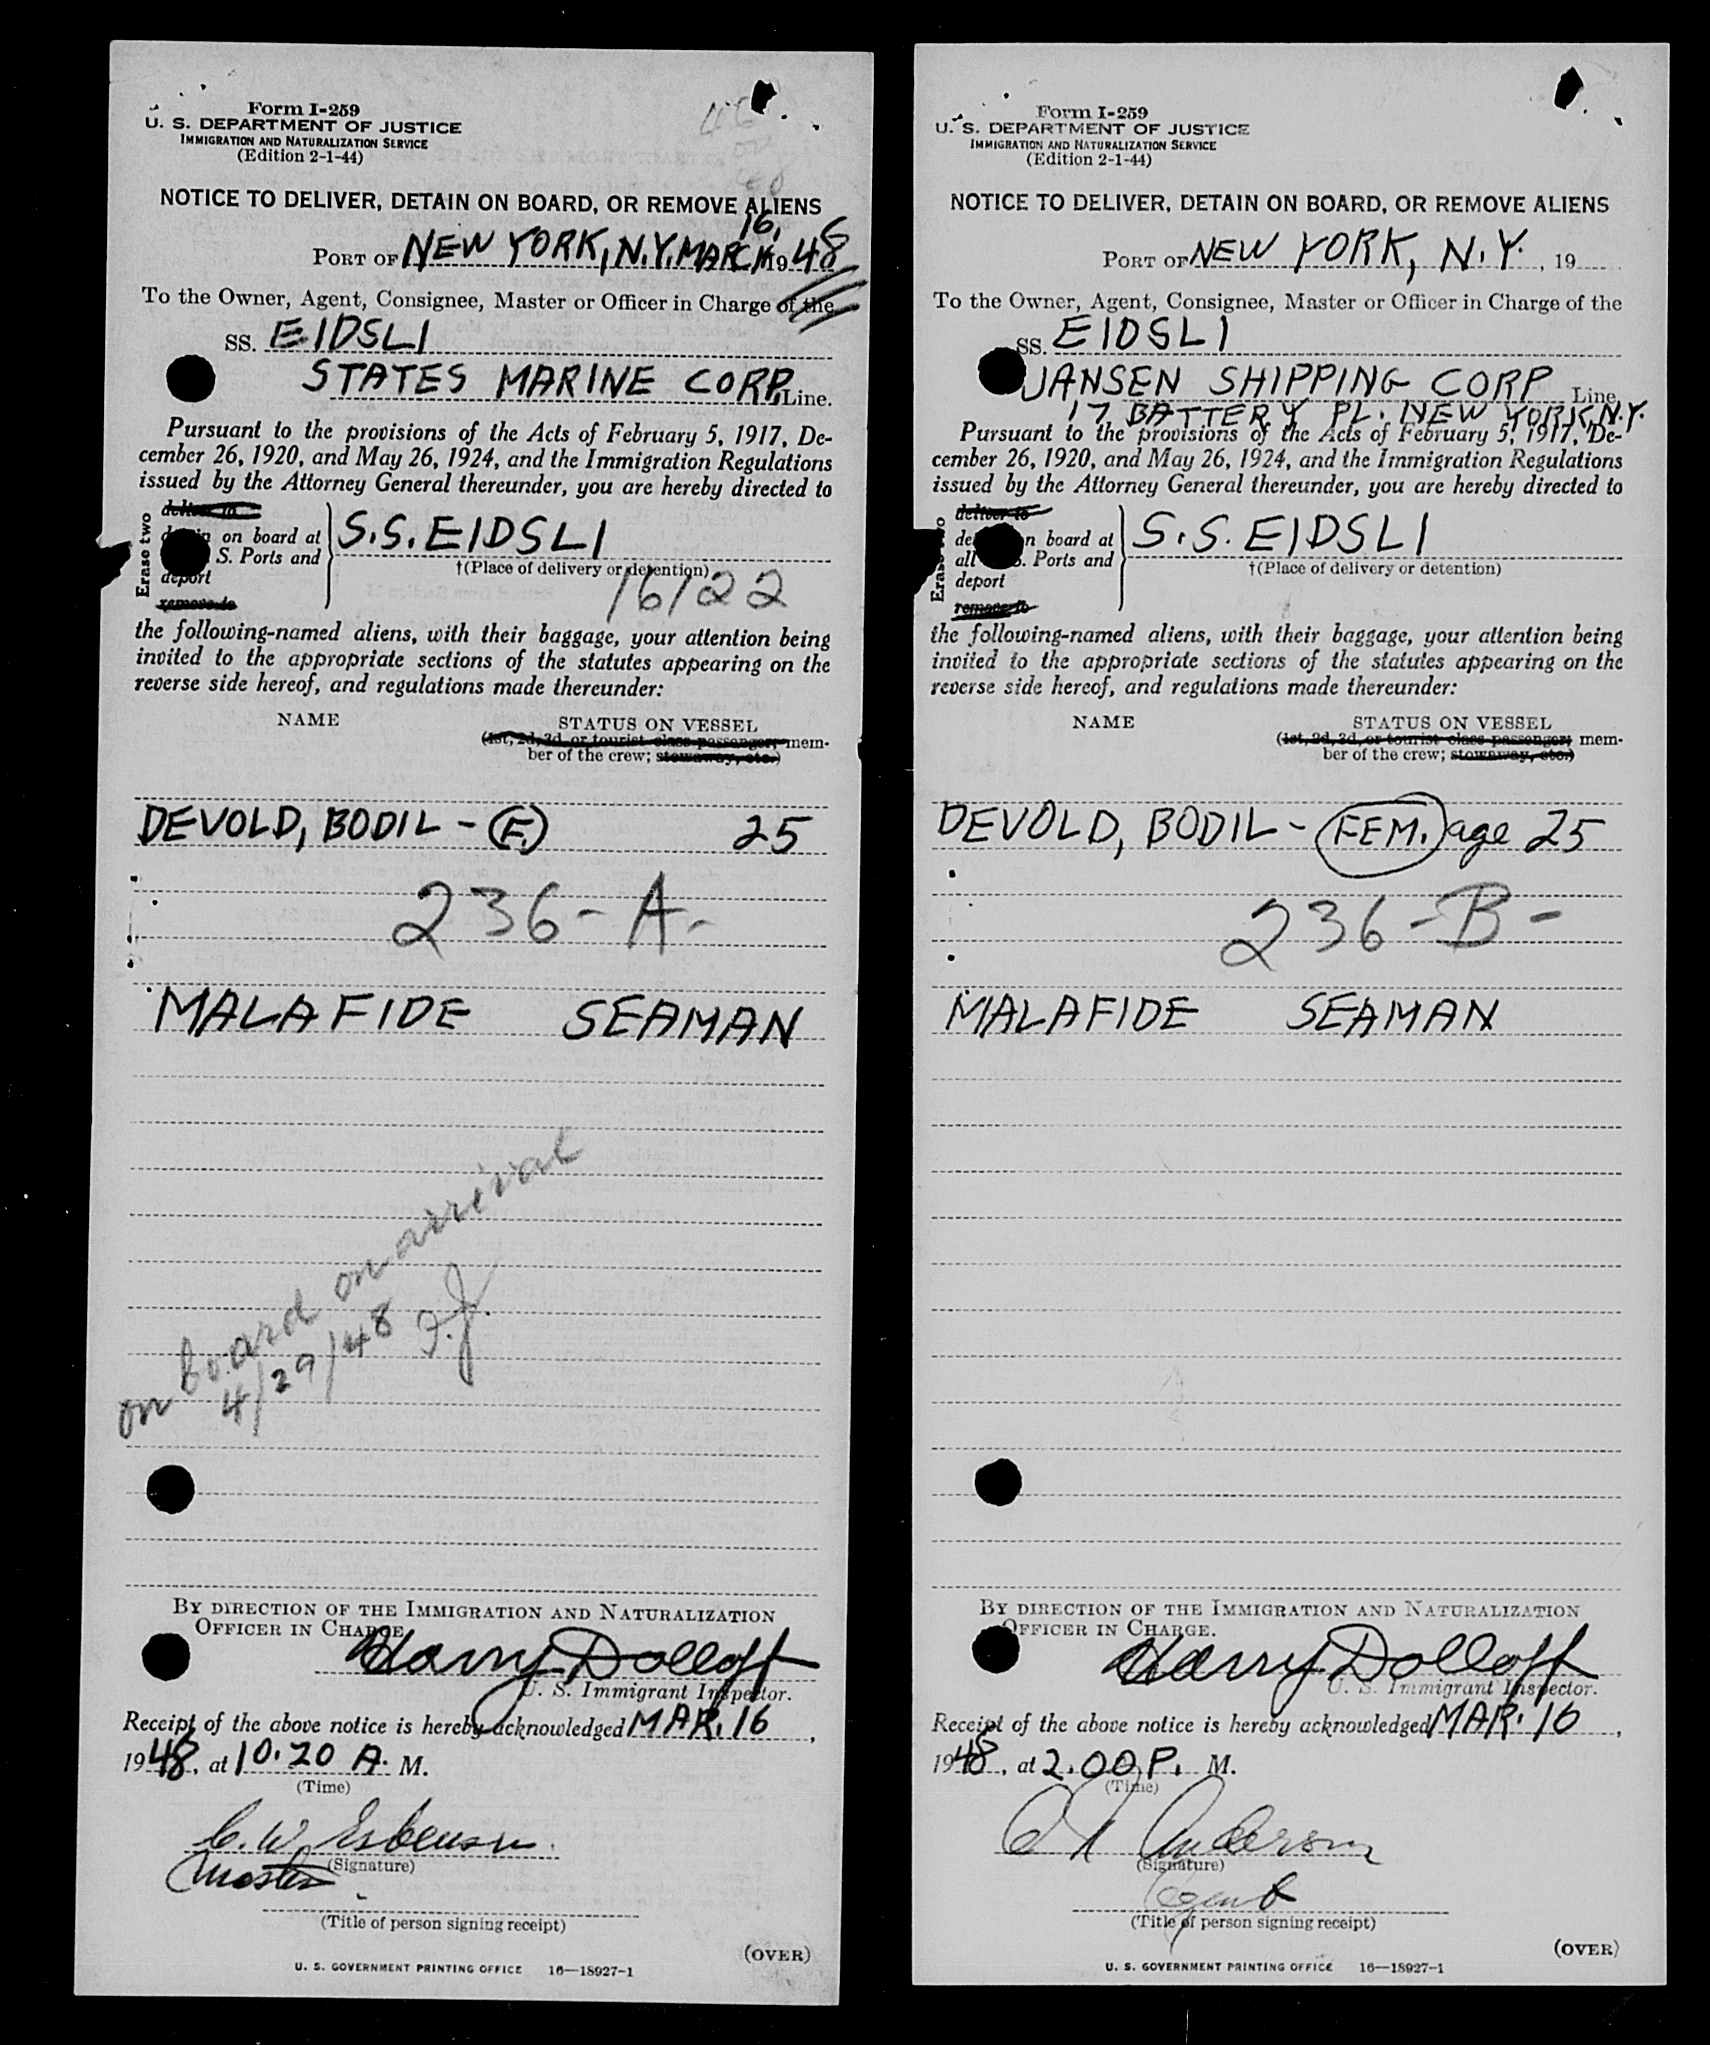 Form I-259
U. S. DEPARTMENT OF JUSTICE
IMMIGRATION AND NATURALIZATION SERVICE
(Edition 2-1-44)
NOTICE TO DELIVER, DETAIN ON BOARD, OR REMOVE ALIENS
16,
PORT OF NEW YORK, N.Y. MARCH 1948
To the Owner, Agent, Consignee, Master or Officer in Charge of the
SS. EIDSLI
STATES MARINE CORP. Line.
Pursuant to the provisions of the Acts of February 5, 1917, De-
cember 26, 1920, and May 26, 1924, and the Immigration Regulations
issued by the Attorney General thereunder, you are hereby directed to
Erase two
deliver to
on board at
S. Ports and
deport
remove to
S.S. EIDSLI
†(Place of delivery or detention)
16122
the following-named aliens, with their baggage, your attention being
invited to the appropriate sections of the statutes appearing on the
reverse side hereof, and regulations made thereunder:
NAME
STATUS ON VESSEL
(1st, 2d, 3d, or tourist class passenger; mem-
ber of the crew; stowaway, etc.)
DEVOLD, BODIL - (F.) 25
236-A-
MALAFIDE SEAMAN
on board on arrival
4/29/48
BY DIRECTION OF THE IMMIGRATION AND NATURALIZATION
OFFICER IN CHARGE.
Harry Dolloff
U. S. Immigrant Inspector.
Receipt of the above notice is hereby acknowledged MAR. 16,
1948, at 10.20 A. M.
(Time)
C. W. Esbensen
(Signature)
Master
(Title of person signing receipt)
(OVER)
U. S. GOVERNMENT PRINTING OFFICE 16—18927-1
Form I-259
U. S. DEPARTMENT OF JUSTICE
IMMIGRATION AND NATURALIZATION SERVICE
(Edition 2-1-44)
NOTICE TO DELIVER, DETAIN ON BOARD, OR REMOVE ALIENS
PORT OF NEW YORK, N.Y., 19
To the Owner, Agent, Consignee, Master or Officer in Charge of the
SS. EIDSLI
JANSEN SHIPPING CORP Line.
17 BATTERY PL. NEW YORK, N.Y.
Pursuant to the provisions of the Acts of February 5, 1917, De-
cember 26, 1920, and May 26, 1924, and the Immigration Regulations
issued by the Attorney General thereunder, you are hereby directed to
deliver to
on board at
all Ports and
deport
remove to
S.S. EIDSLI
†(Place of delivery or detention)
the following-named aliens, with their baggage, your attention being
invited to the appropriate sections of the statutes appearing on the
reverse side hereof, and regulations made thereunder:
NAME
STATUS ON VESSEL
(1st, 2d, 3d, or tourist class passenger; mem-
ber of the crew; stowaway, etc.)
DEVOLD, BODIL - (FEM.) age 25
236-B-
MALAFIDE SEAMAN
BY DIRECTION OF THE IMMIGRATION AND NATURALIZATION
OFFICER IN CHARGE.
Harry Dolloff
U. S. Immigrant Inspector.
Receipt of the above notice is hereby acknowledged MAR. 16,
1948, at 2.00 P. M.
(Time)
Anderson
(Signature)
Agent
(Title of person signing receipt)
(OVER)
U. S. GOVERNMENT PRINTING OFFICE 16—18927-1